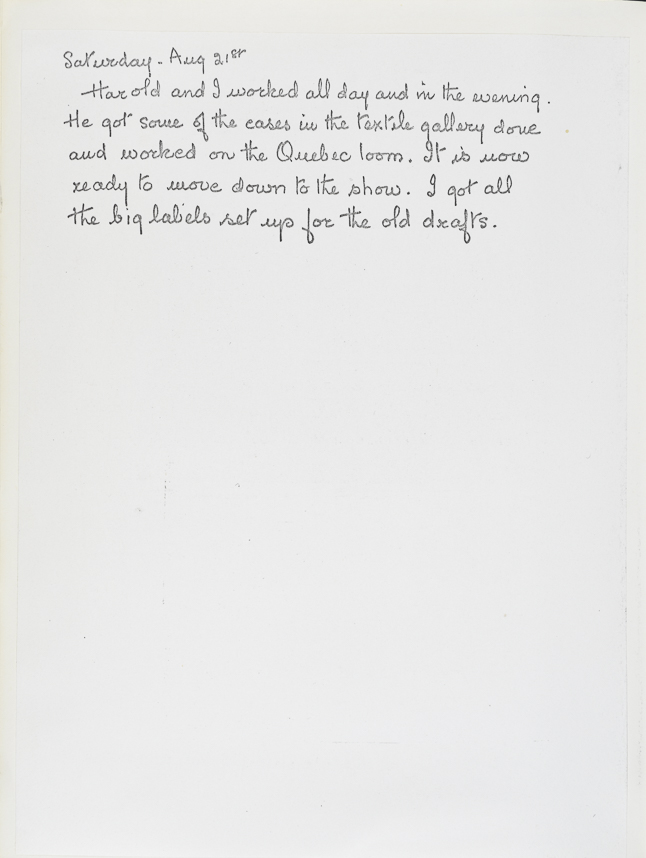 Saturday - Aug 21st
Harold and I worked all day and in the evening.
He got some of the cases in the textile gallery done
and worked on the Quebec loom. It is now
ready to move down to the show. I got all
the big labels set up for the old drafts.